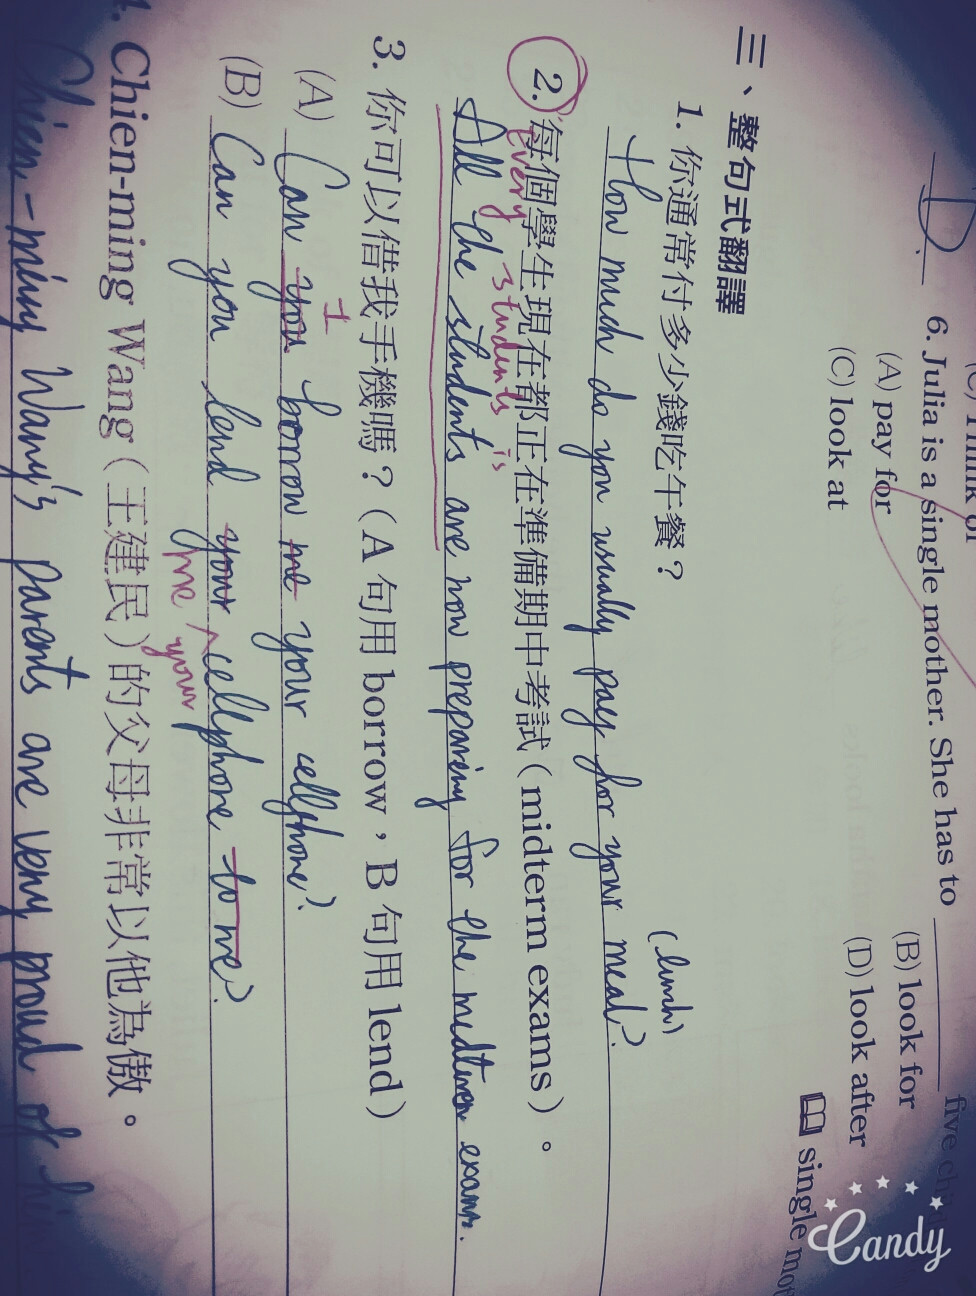 D.
6. Julia is a single mother. She has to ______ five
(A) pay for
(B) look for
(C) look at
(D) look after
single
三、整句式翻譯
1. 你通常付多少錢吃午餐？
(lunch)
How much do you usually pay for your meal?
2. 每個學生現在都正在準備期中考試（midterm exams）。
Every students is
All the students are now preparing for the midterm exams.
3. 你可以借我手機嗎？（A 句用 borrow，B 句用 lend）
I
(A) Can you borrow me your cellphone?
(B) Can you lend your cellphone to me?
me your
Chien-ming Wang（王建民）的父母非常以他為傲。
Chien-ming Wang's parents are very proud of
Candy